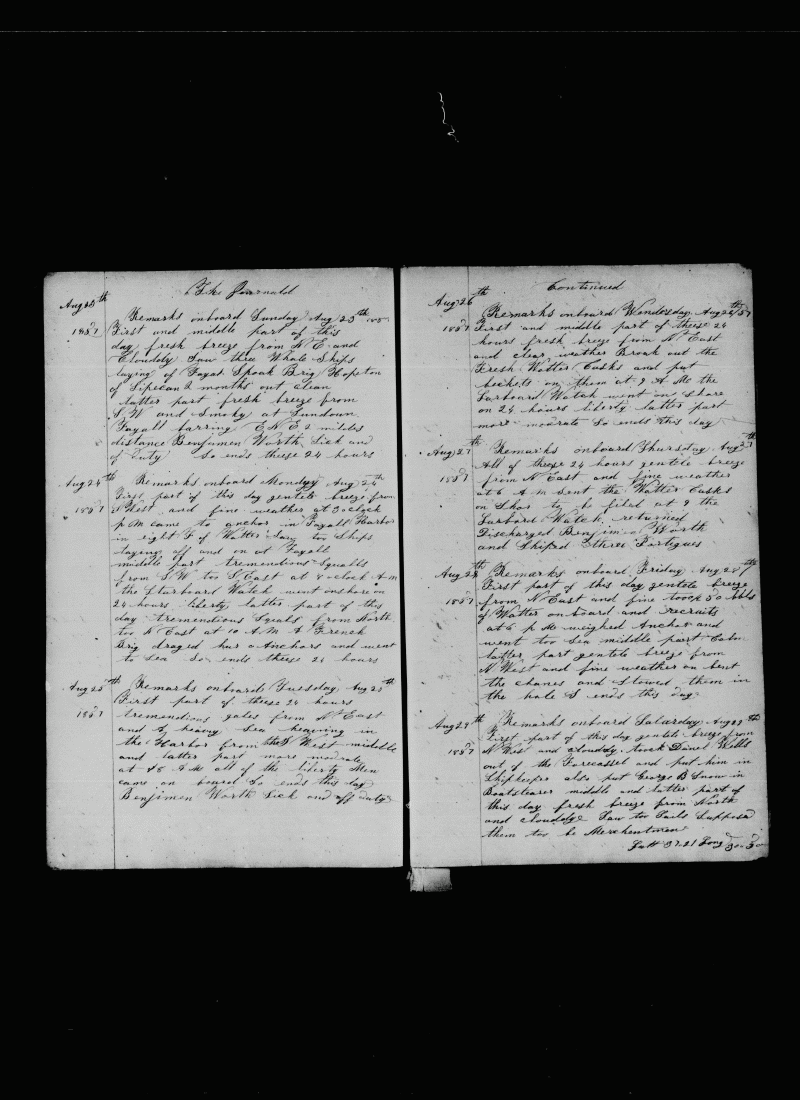 The Journald
Aug 23th
1857
Remarks onboard Sunday Aug 23th
First and middle part of this
day fresh breeze from N E and
Clouddy Saw three Whale Ships
laying of Fayal Spoak Brig Hopeton
of Sipecan 2 months out clean
latter part fresh breeze from
S W and Smoky at Sundown
Fayall barring E N E 2 miles
distance Benjimen Worth Sick and
of Duty So ends theese 24 hours
Aug 24th
1857
Remarks onboard Monday Aug 24th
First part of this day gentele breeze from
and fine weather at 3 oclock
p M came to anchor in Fayall Harbor
in eight F of Watter Saw too Ships
laying off and on at Fayall
middle part tremendious Squalls
from S W too S East at 8 oclock A M
the Starboard Watch went onshore on
24 hours liberty latter part of this
day tremendious Sqals from North
too N East at 10 A M A French
Brig draged hur Anchors and went
to Sea So ends theese 24 hours
Aug 25th
1857
Remarks onboard Tuesday Aug 25th
First part of theese 24 hours
tremendious gales from N East
and A heavy Sea heaving in
the Harbor from the S West middle
and latter part more modrate
at 8 A M all of the liberty Men
came on board So ends this day
Benjimen Worth Sick and off duty
Continued
Aug 26th
1857
Remarks onboard Wendesday Aug 26th/57
First and middle part of theese 24
hours fresh breeze from N East
and clear weather Broak out the
Fresh Watter Casks and put
beckets on them at 9 A M the
Larboard Watch went on Shore
on 24 hours liberty latter part
more modrate So ends this day
Aug 27th
1857
Remarks onboard Thursday Aug 27th
All of theese 24 hours gentele breeze
from N East and fine weather
at 6 A M Sent the Watter Casks
on Shore to be filed at 9 the
Larbord Watch returned
Discharged Benjimin Worth
and Shiped three Portegues
Aug 28th
1857
Remarks onboard Friday Aug 28th
First part of this day gentele breeze
from N East and fine toock 50 bbls
of Watter onboard and recruits
at 6 p M weighed Anchor and
went too Sea middle part Calm
latter part gentele breeze from
N West and fine weather on bent
the chanes and Stowed them in
the hole S ends this day
Aug 29th
1857
Remarks onboard Satarday Aug 29th
First part of this day gentele breeze from
N West and clouddy toock Danel Wills
out of the Forecassel and put him in
Shipkeepe also put George B Snow in
Boatstearer middle and latter part of
this day fresh breeze from North
and clouddye Saw too Sails Supposd
them too be Merchentmen
Latt 37.21 Long 30.30